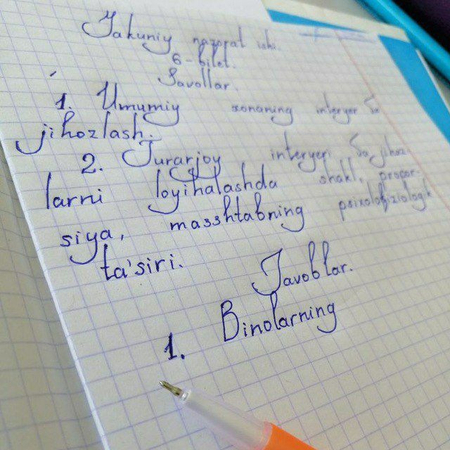 Yakuniy nazorat ishi.
6-bilet.
Savollar.
1. Umumiy zonaning interyer
jihozlash.
2. Turarjoy interyer jihoz-
larni loyihalashda shakl, propor-
siya, masshtabning psixofiziologik
ta'siri.
Javoblar.
1. Binolarning